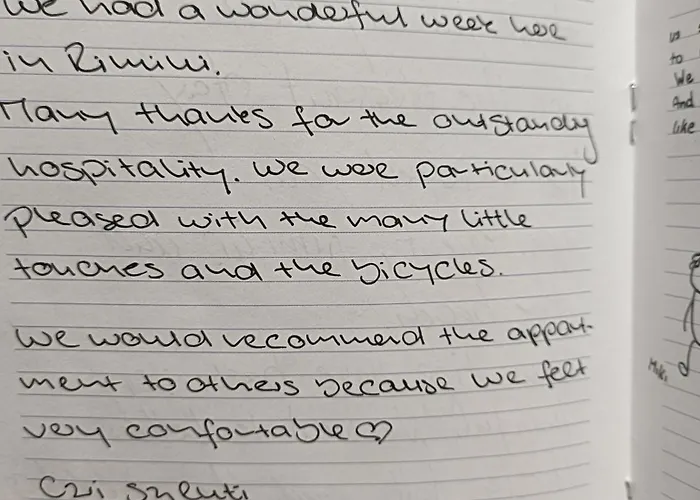 We had a wonderful week here
in Rimini.
Many thanks for the outstandy
hospitality. We were particularly
pleased with the many little
touches and the bicycles.
We would recommend the appart-
ment to others because we felt
very comfortable♡
us
to
We
And
like